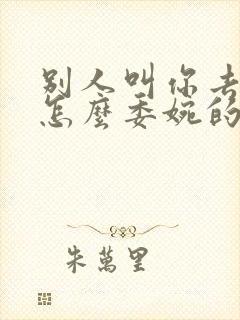 别人叫你去
怎麼委婉的
朱萬里